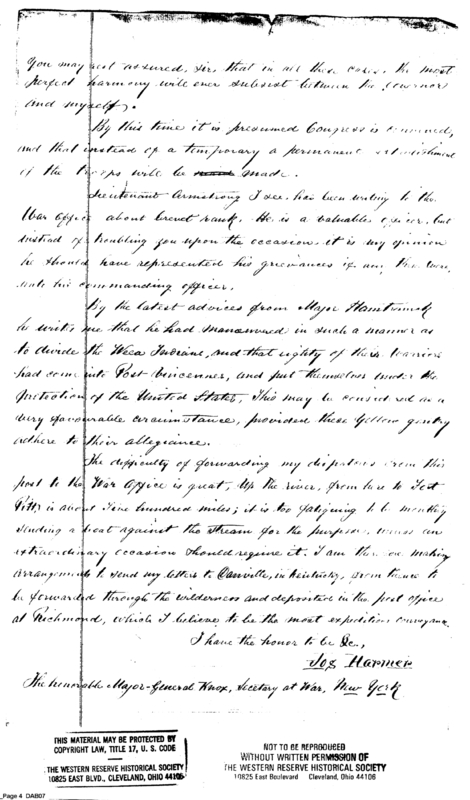 you may rest assured, Sir, that in all these cases, the most
perfect harmony will ever subsist between the Governor
and myself.
By this time it is presumed Congress is convened,
and that instead of a temporary a permanent establishment
of the troops will be made.
Lieutenant Armstrong I see, has been writing to the
War office about brevet rank. He is a valuable officer, but
instead of troubling you upon the occasion, it is my opinion
he should have represented his grievances if any there were,
unto his commanding officer.
By the latest advices from Major Hamtramck
he writes me that he had manœuvred in such a manner as
to divide the Wea Indians, and that eighty of their warriors
had come into Post Vincennes, and put themselves under the
protection of the United States, This may be considered as a
very favourable circumstance, provided these yellow gentry
adhere to their allegiance.
The difficulty of forwarding my dispatches from this
post to the War Office is great, Up the river, from here to Fort
Pitt, is about five hundred miles; it is too fatiguing to be monthly
sending a boat against the stream for the purpose, unless an
extraordinary occasion should require it. I am therefore making
arrangements to send my letters to Danville, in Kentucky, from thence to
be forwarded through the wilderness and deposited in the post office
at Richmond, which I believe to be the most expeditious conveyance.
I have the honor to be &c.,
Jos Harmer
The honorable Major-General Knox, Secetary at War, New York
THIS MATERIAL MAY BE PROTECTED BY
COPYRIGHT LAW, TITLE 17, U. S. CODE
THE WESTERN RESERVE HISTORICAL SOCIETY
10825 EAST BLVD., CLEVELAND, OHIO 44106
NOT TO BE REPRODUCED
WITHOUT WRITTEN PERMISSION OF
THE WESTERN RESERVE HISTORICAL SOCIETY
10825 East Boulevard Cleveland, Ohio 44106
_Page 4 DAB07